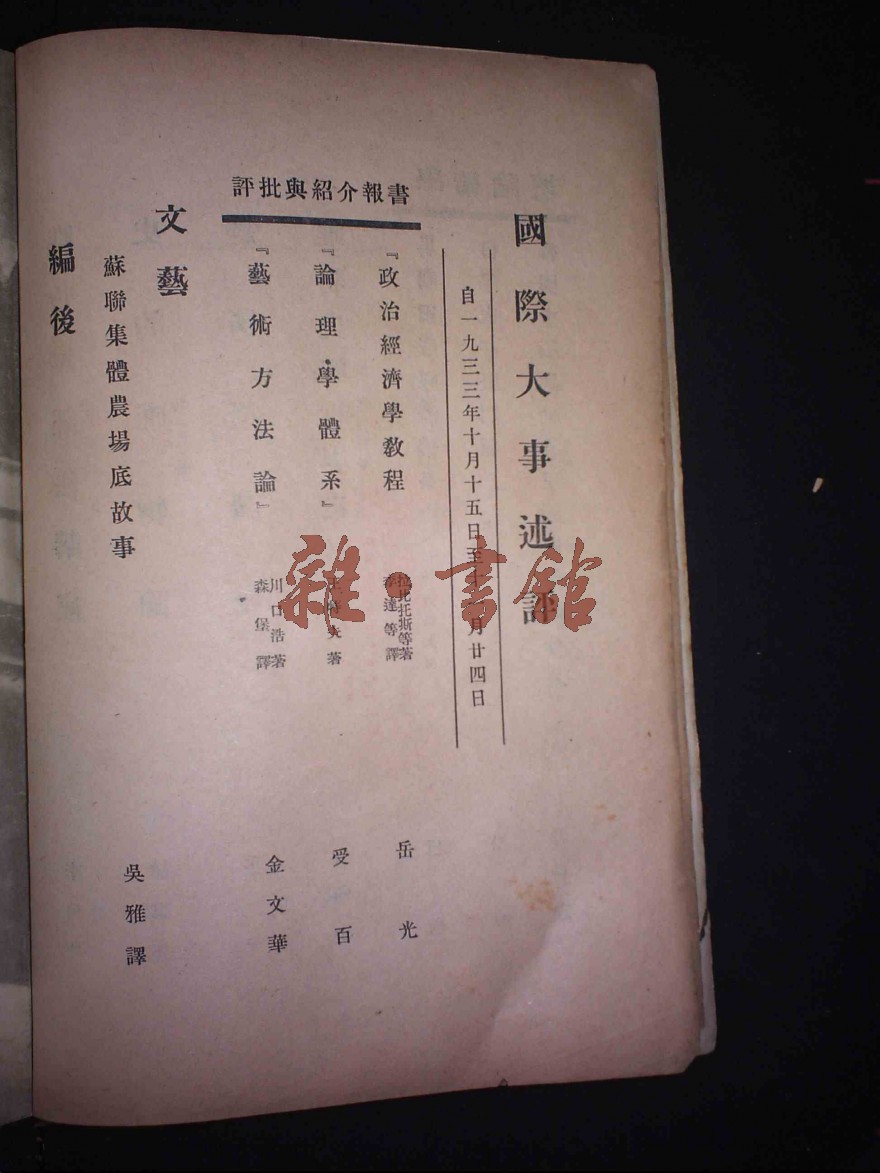 國際大事述評
自一九三三年十月十五日至 月廿四日
書報介紹與批評
『政治經濟學教程
拉比托斯等著
達等譯
岳光
『論理學體系』
夫著
受百
『藝術方法論』
川口浩著
森堡譯
金文華
文藝
蘇聯集體農場底故事
吳雅譯
編後
雜·書館